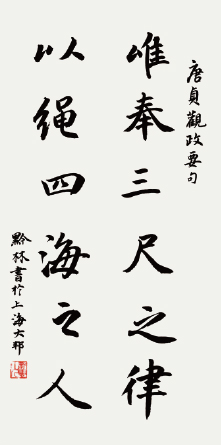 唐貞觀政要句
唯奉三尺之律
以绳四海之人
黔林書於上海大邦